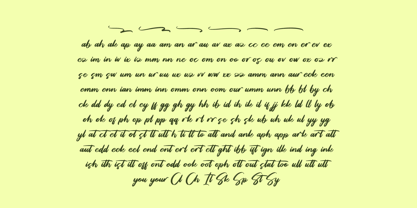 ab ah ak ap ay aa am an ar au av ax az cc ee em en er ev ex
ez im in is ix mm nn ne oc om en oo or os ou ov ow ox oz rr
se sm sw um un ur uu ux uz ww xx zz amm ann aur eek een
emm enn ian imm inn omm onn our umm unn bb bl by ch
ck dd dy ed el ey ff gg gh gy hh ib id ih ik il if jj kk ld ll ly ob
oh ok of ph ep pl pp qq rk rt rr se sh sk sk ub uh uk ul yy yg
yl at ct et it ot st tt utt h ti tt to att and ank aph app ark art att
aut edd eek end ent ert ett ght ibb ift ign ilk ind ing ink
ish ith ist itt off ont odd ook ott out stat too ull utt utt
you your Ci Ch It Sk Sp St Sy